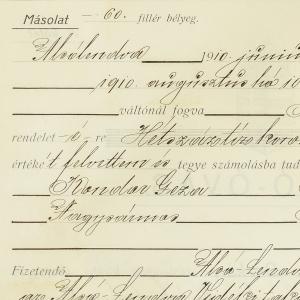 Másolat — 60. fillér bélyeg.
Alsólendva 1910. junius
1910. augusztus hó 10
váltónál fogva
rendelet -é- re Hétszáztíz koro
értékét felvettem és tegye számolásba tud
Kondor Géza
Nagyszámos
Fizetendő Alsó-Lendva
az Alsó-Lendva Vidéki tak